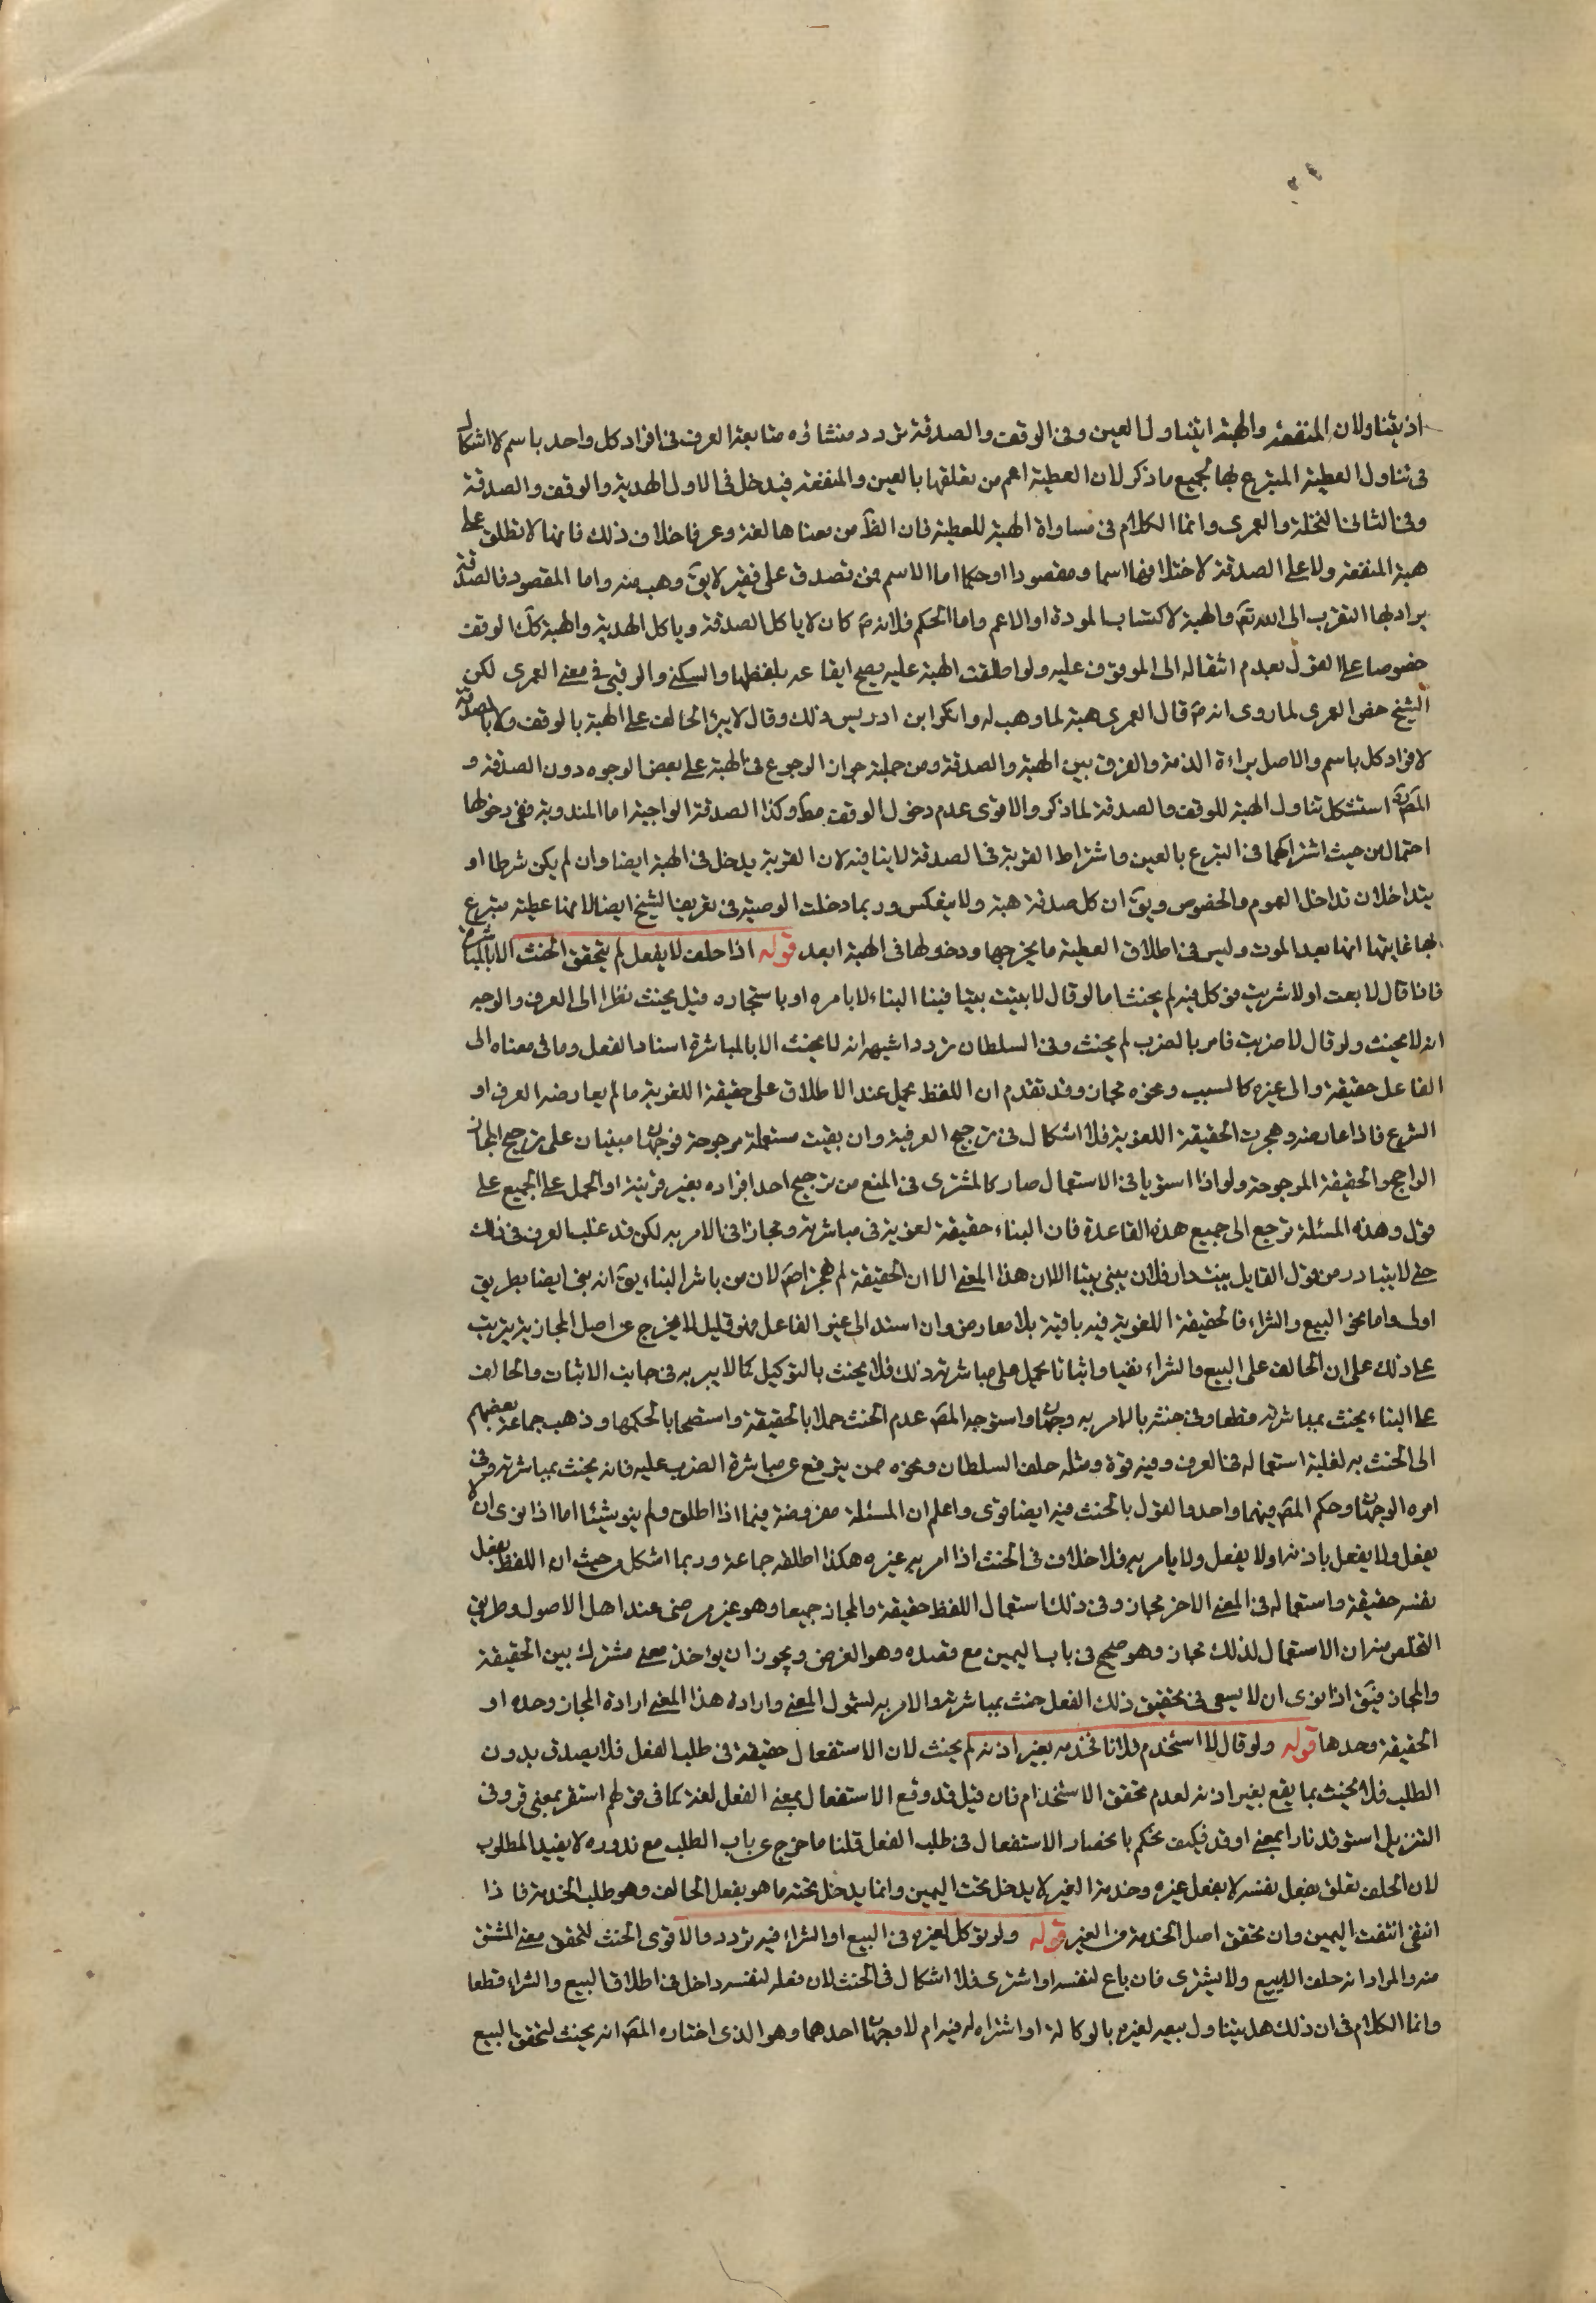 اذ يتناولان المنفعة والهبة انما يتناول العين وفى الوقف والصدقة تردد منشاؤه متابعة العرف فى افراد كل واحد باسم لا اشكال
فى تناول العطية المتبرع بها لجميع ما ذكر لان العطية اعم من تعلقها بالعين والمنفعة فيدخل فى الاول الهدية والوقف والصدقة
وفى الثانى النحلة والعمرى وانما الكلام فى مساواة الهبة للعطية فان الظ من معناها لغة وعرفا خلاف ذلك فانها لا تطلق على
هبة المنفعة ولا على الصدقة لاختلافهما اسما ومقصودا وحكما اما الاسم فمن تصدق على فقير لا يق وهب منه واما المقصود فالصدقة
يراد بها التقرب الى الله تع والهبة لاكتساب المودة او الاعم واما الحكم فلانه ص كان لا ياكل الصدقة وياكل الهدية والهبة وكك الوقف
خصوصا على القول بعدم انتقاله الى الموقوف عليه ولو اطلقت الهبة عليه يصح ايقاعه بلفظها والسكنى والرقبى فى معنى العمرى لكن
الشيخ خص العمرى لما روى انه ص قال العمرى هبة لما وهب له وانكر ابن ادريس ذلك وقال لا يبر الحالف على الهبة بالوقف ولا بالصدقة
لافراد كل باسم والاصل براءة الذمة والفرق بين الهبة والصدقة ومن جملته جواز الرجوع فى الهبة على بعض الوجوه دون الصدقة و
المص ره استشكل تناول الهبة للوقف والصدقة لما ذكر والاقوى عدم دخول الوقف مط وكذا الصدقة الواجبة اما المندوبة ففى دخولها
احتمال من حيث اشتراكهما فى التبرع بالعين واشتراط القربة فى الصدقة لا ينافيه لان القربة يدخل فى الهبة ايضا وان لم يكن شرطا او
يتداخلان تداخل العموم والخصوص ويق ان كل صدقة هبة ولا ينعكس وربما دخلت الوصية فى تعريف الشيخ ايضا لانها عطية متبرع
بها غايتها انها بعد الموت وليس فى اطلاق العطية ما يخرجها ودخولها فى الهبة ابعد قوله اذا حلف لا يفعل لم يتحقق الحنث الا بالمباشرة
فاذا قال لا بعت او لا شريت فوكل فيه لم يحنث اما لو قال لا بنيت بيتا فبناه البناء لا بامره او باستجاره قيل يحنث نظرا الى العرف والوجه
انه لا يحنث ولو قال لا ضربت فامر بالضرب لم يحنث وفى السلطان تردد اشبهه انه لا يحنث الا بالمباشرة اسناد الفعل وما فى معناه الى
الفاعل حقيقة والى غيره كالسبب ونحوه مجاز وقد تقدم ان اللفظ يحمل عند الاطلاق على حقيقة اللغوية ما لم يعارضه العرف او
الشرع فاذا عارضه وهجرت الحقيقة اللغوية فلا اشكال فى ترجيح العرفية وان بقيت مستعملة مرجوحة فوجهان مبنيان على ترجيح المجاز
الراجح والحقيقة المرجوحة ولو اذا استويا فى الاستعمال صار كالمشترى فى المنع من ترجيح احد افراده بغير قرينة او الحمل على الجميع على
قول وهذه المسئلة ترجع الى جميع هذه القاعدة فان البناء حقيقة لغوية فى مباشرته ومجازا فى الامر به لكن قد غلب العرف فى ذلك
حتى لا يتبادر من قول القايل بنيت دار فلان يبنى بيتا الا ان هذا المعنى الا ان الحقيقة لم يهجر اصم لان من باشر البناء يق انه بنى ايضا بطريق
اولى واما نحو البيع والشراء فالحقيقة اللغوية فيه باقية بلا معارض وان اسند الى غير الفاعل فهو قليل لا يخرج عن اصل المجازية يترتب
على ذلك على ان الحالف على البيع والشراء نفيا واثباتا يحمل على مباشرته ذلك فلا يحنث بالتوكيل كما لا يبر به فى جانب الاثبات والحالف
على البناء يحنث بمباشرته قطعا وفى حنثه بالامر به وجهان واستوجه المص عدم الحنث حملا بالحقيقة واستصحابا لحكمها وذهب جماعة بعضهم
الى الحنث به لغلبة استعماله فى العرف وفيه قوة ومثله حلف السلطان ونحوه ممن يترفع عن مباشرة الضرب عليه فانه يحنث بمباشرته وفى
امره الوجهان وحكم المص فيهما واحد والقول بالحنث فيه ايضا قوى واعلم ان المسئلة مفروضة فيما اذا اطلق ولم ينو شيئا اما اذا نوى ان لا
يفعل ولا يفعل باذنه او لا يفعل ولا يامر به فلا خلاف فى الحنث اذا امر به غيره هكذا اطلقه جماعة وربما اشكل من حيث ان اللفظ بفعل
نفسه حقيقة واستعماله فى المعنى الاخر مجاز وفى ذلك استعمال اللفظ حقيقة والمجاز جميعا وهو غير مرضى عند اهل الاصول وطريق
التخلص منه ان الاستعمال لذلك مجاز وهو صحيح فى باب اليمين مع قصده وهو الغرض ويجوز ان يؤاخذ معنى مشترك بين الحقيقة
والمجاز فيق اذا نوى ان لا يسعى فى تحقيق ذلك الفعل حنث بمباشرته والامر به لشمول المعنى وارادة هذا المعنى ارادة المجاز وحده او
الحقيقة وحدها قوله ولو قال لا استخدم فلانا فخدمه بغير اذنه لم يحنث لان الاستفعال حقيقة فى طلب الفعل فلا يصدق بدون
الطلب فلا يحنث بما يقع بغير اذنه لعدم تحقق الاستخدام فان قيل قد وقع الاستفعال بمعنى الفعل لغة كما فى قولهم استقر بمعنى قر وفى
التنزيل استوقد نارا بمعنى اوقد فكيف نحكم بانحصار الاستفعال فى طلب الفعل قلنا ما خرج عن باب الطلب مع ندوره لا يفيد المطلوب
لان الحلف تعلق بفعل نفسه لا بفعل غيره وخدمة الغير لا يدخل تحت اليمين وانما يدخل تحته ما هو بفعل الحالف وهو طلب الخدمة فاذا
انتفى انتفت اليمين وان تحقق اصل الخدمة من الغير قوله ولو توكل لغيره فى البيع او الشراء فيه تردد والاقوى الحنث لتحقق معنى المشتق
منه والمراد انه حلف لا يبيع ولا يشترى فان باع لنفسه او اشترى فلا اشكال فى الحنث لان فعله لنفسه داخل فى اطلاق البيع والشراء قطعا
وانما الكلام فى ان ذلك هل يتناول بيعه لغيره بالوكالة او اشتراه له فيه ام لا وجهان احدهما وهو الذى اختاره المص انه يحنث لتحقق البيع